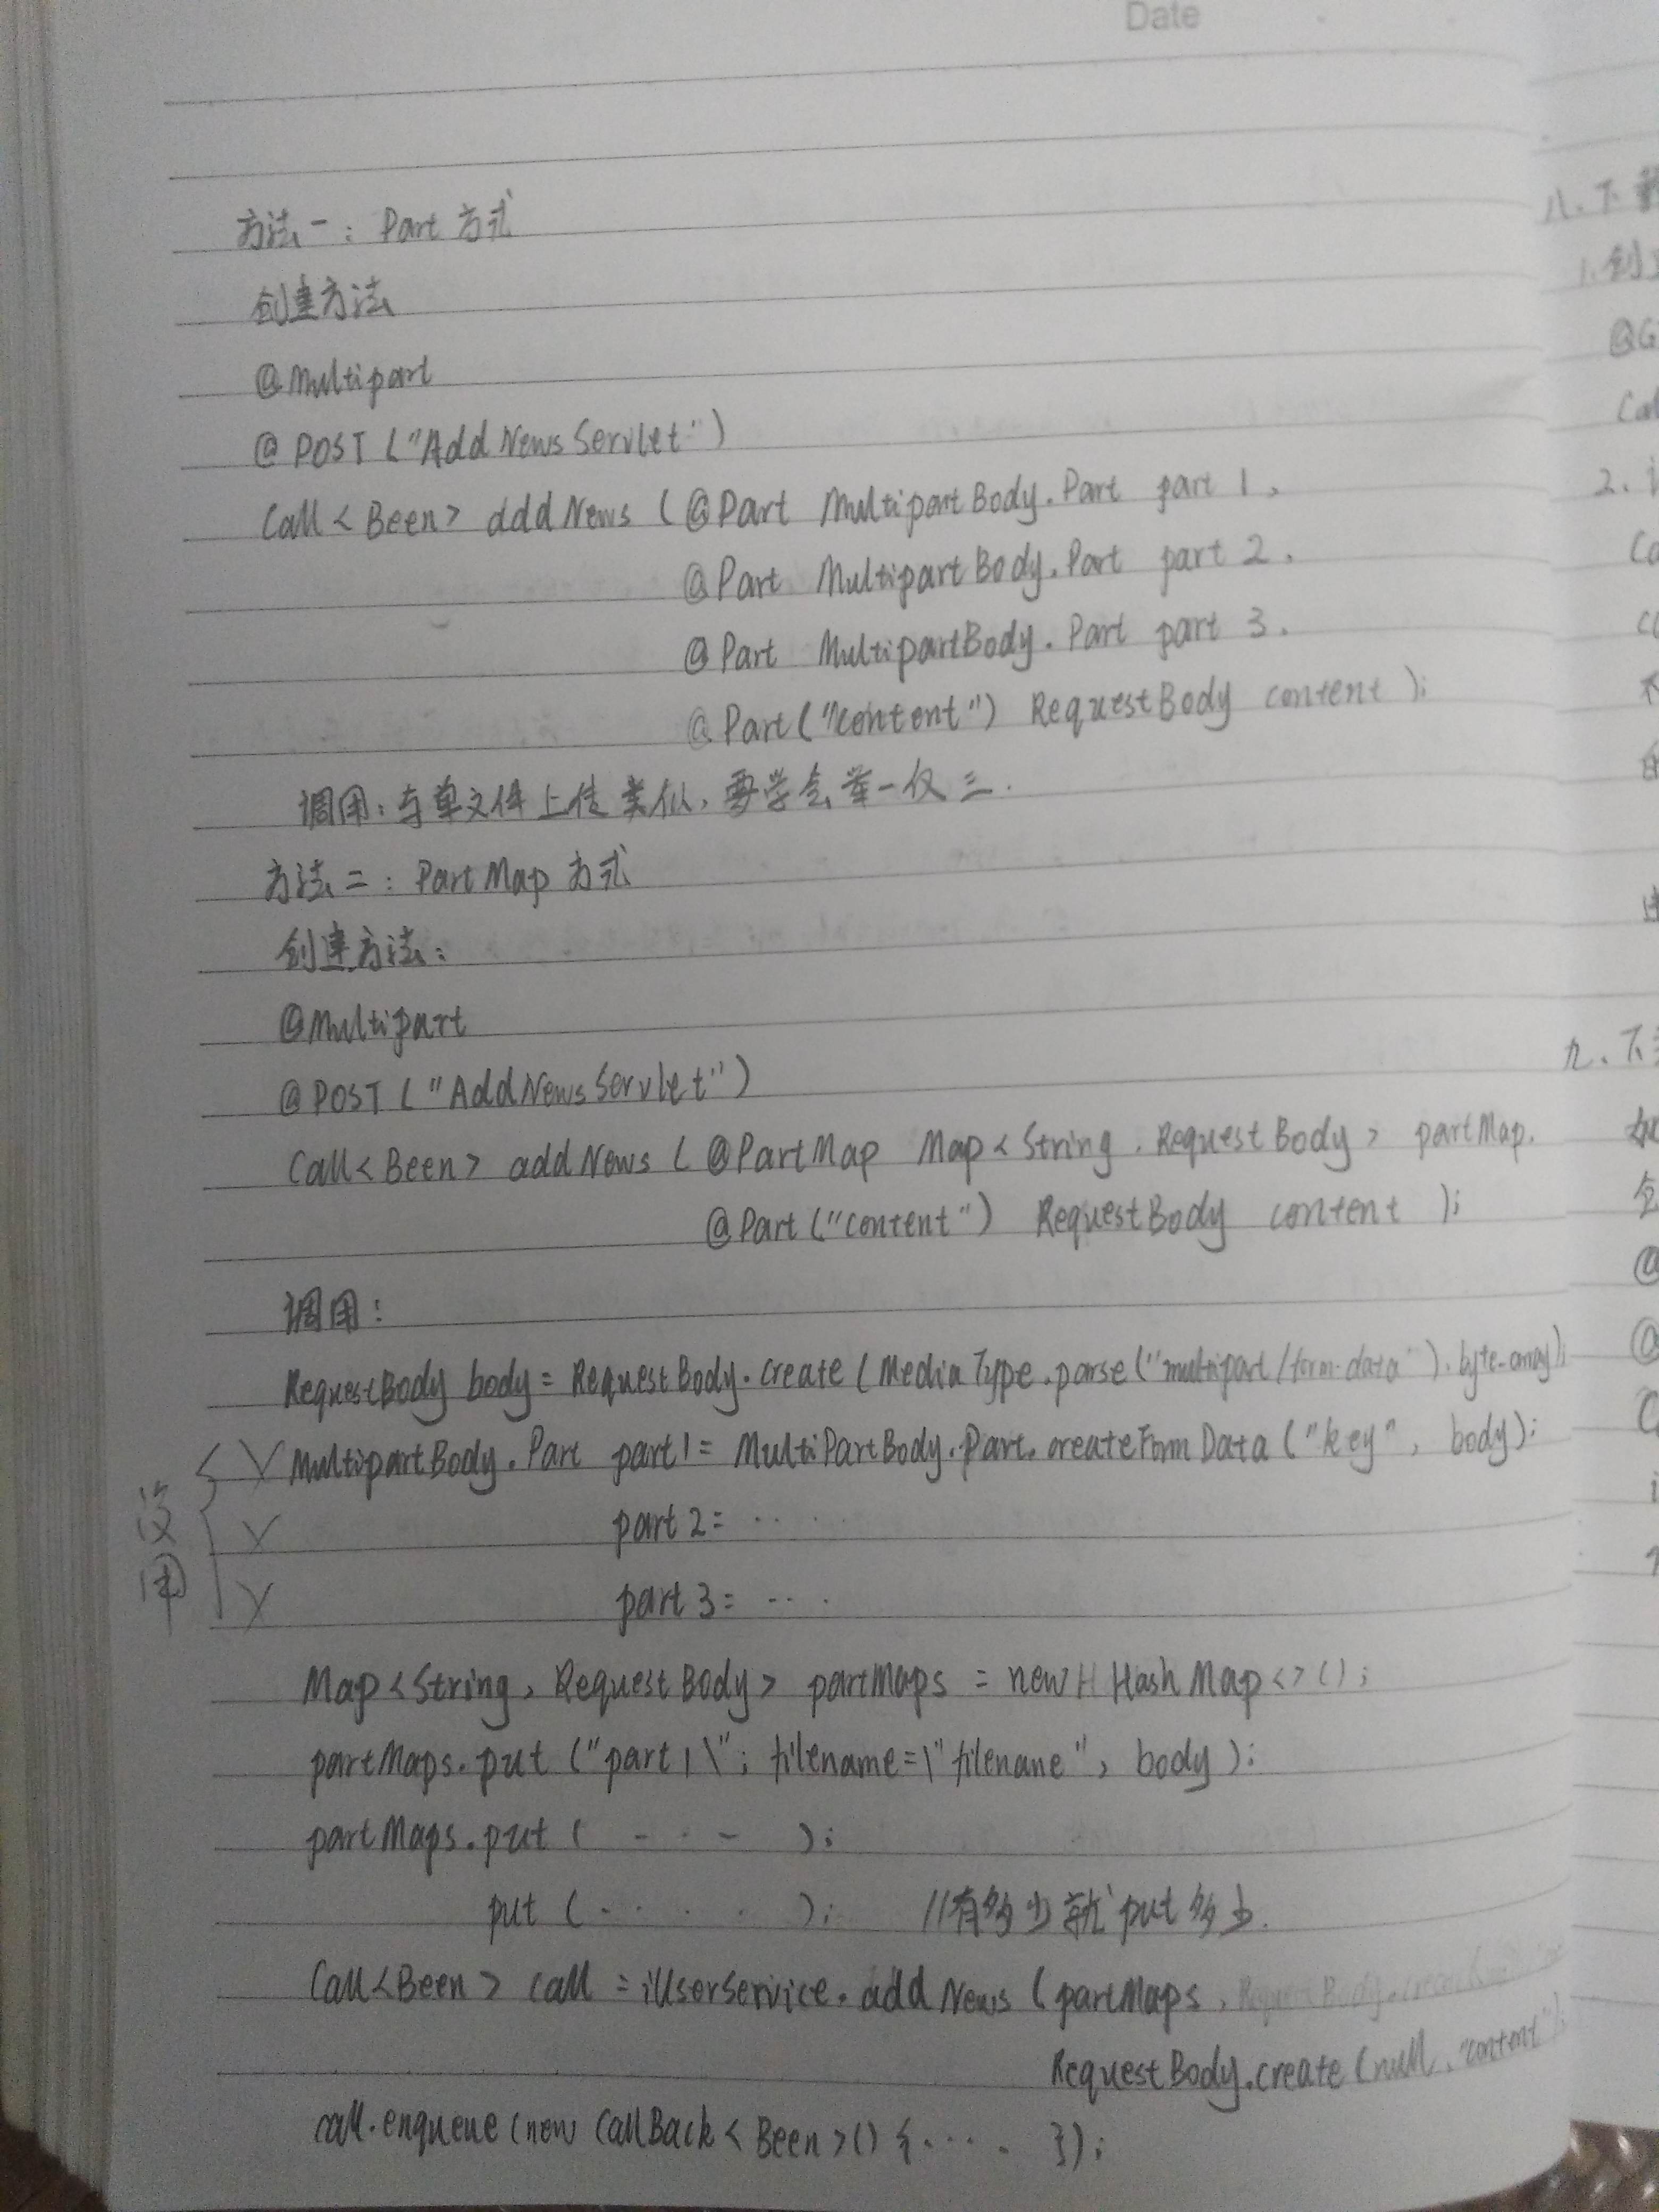 Date
方法一：Part 方式
创建方法
@Multipart
@POST ("AddNewsServlet")
Call<Been> addNews (@Part MultipartBody.Part part1,
@Part MultipartBody.Part part2,
@Part MultipartBody.Part part3,
@Part("content") RequestBody content);
调用：与单文件上传类似，要学会举一仅三.
方法二：PartMap 方式
创建方法：
@Multipart
@POST ("AddNewsServlet")
Call<Been> addNews (@PartMap Map<String, RequestBody> partMap,
@Part("content") RequestBody content);
调用：
RequestBody body = RequestBody.create (MediaType.parse("multipart/form-data"), byte-array);
MultipartBody.Part part1 = MultiPartBody.Part.createFormData ("key", body);
part2 = ....
part3 = ...
没用
Map<String, RequestBody> partMaps = new HashMap<>();
partMaps.put ("part1\"; filename=\"filename", body);
partMaps.put ( - · - );
put ( . . . . ); //有多少就put多少.
Call<Been> call = iUserService.addNews (partMaps,
RequestBody.create (null, "content");
call.enqueue (new CallBack<Been>() {.... });
八.下
1.创
@G
Cal
2.
Co
九、下
如
@